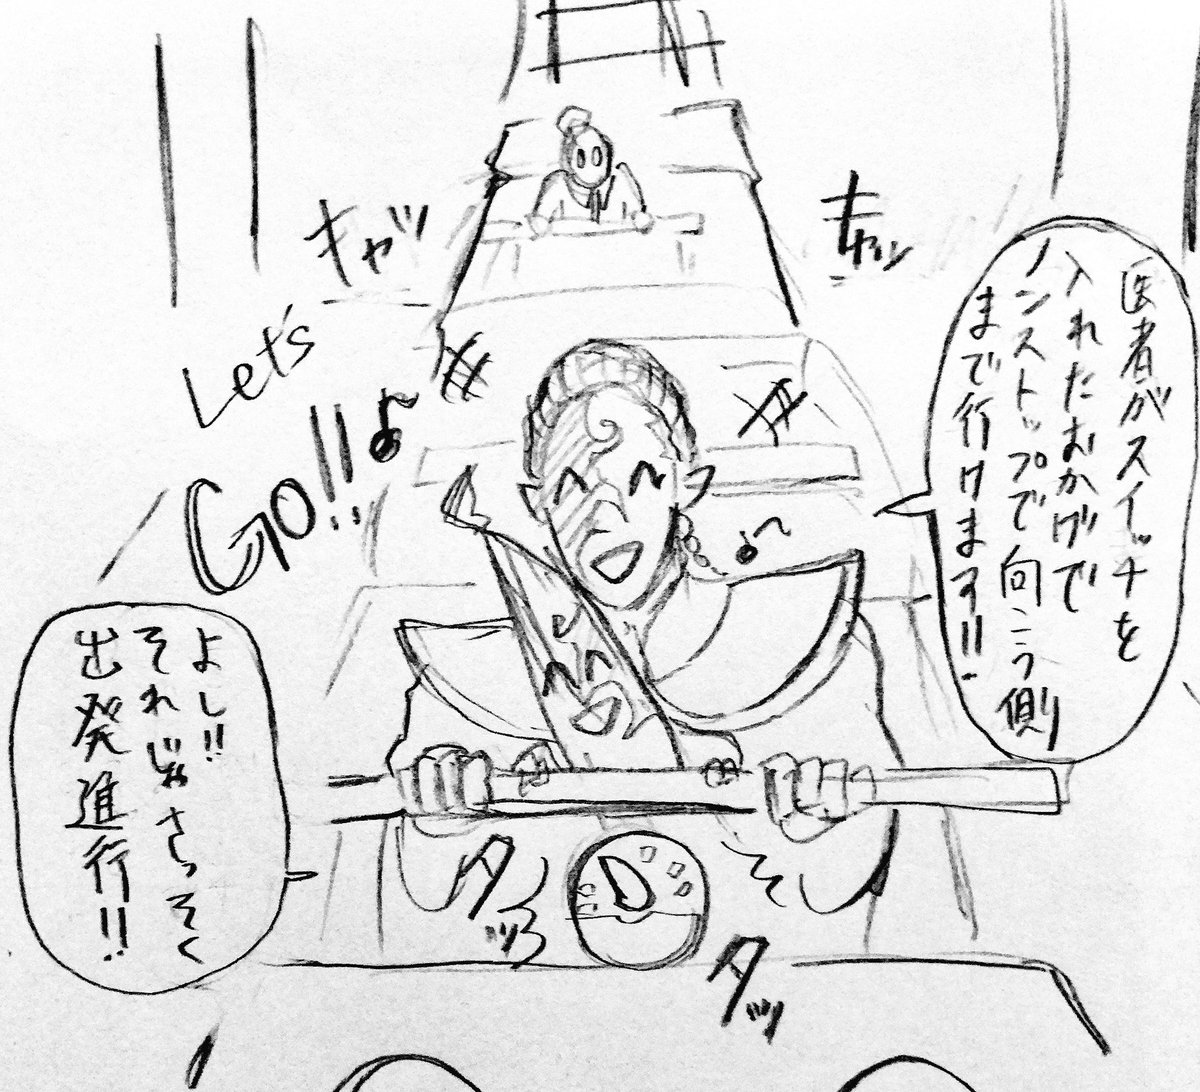 医者がスイッチを
入れたおかげで
ノンストップで向こう側
まで行けます!!
キャッ
キャッ
Let's
Go!!♪
よし!!
それじゃさっそく
出発進行!!
タッ
タッ